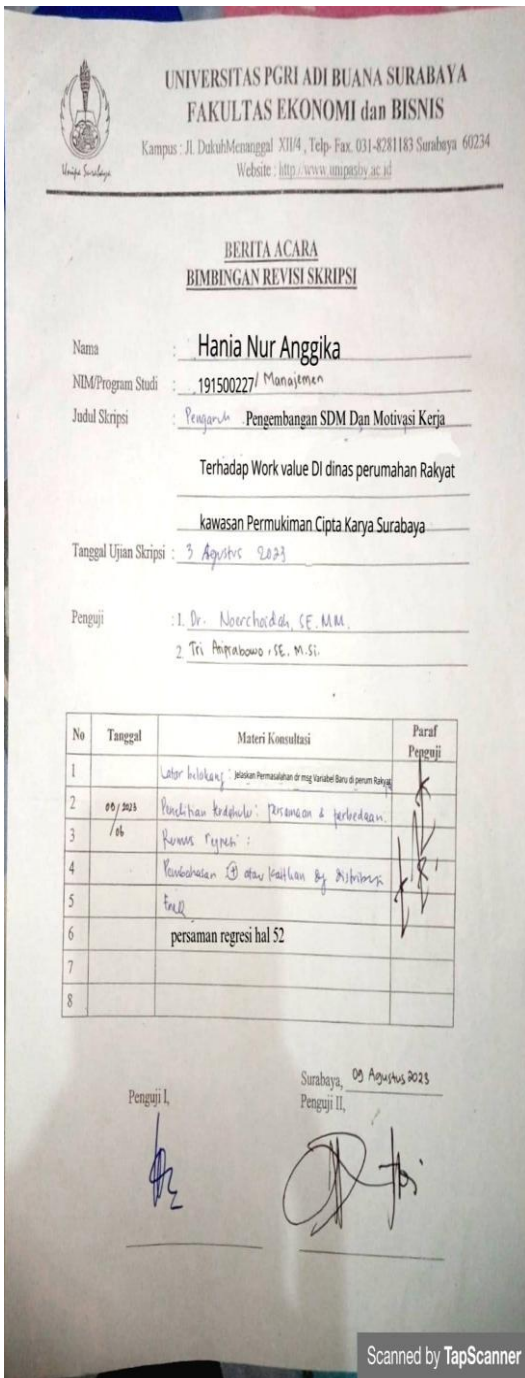 UNIVERSITAS PGRI ADI BUANA SURABAYA
FAKULTAS EKONOMI dan BISNIS
Kampus : Jl. DukuhMenanggal XII/4 , Telp- Fax. 031-8281183 Surabaya 60234
Website : http://www.unipasby.ac.id
Unipa Surabaya
BERITA ACARA
BIMBINGAN REVISI SKRIPSI
Nama : Hania Nur Anggika
NIM/Program Studi : 191500227/ Manajemen
Judul Skripsi : Pengaruh Pengembangan SDM Dan Motivasi Kerja
Terhadap Work value DI dinas perumahan Rakyat
kawasan Permukiman Cipta Karya Surabaya
Tanggal Ujian Skripsi : 3 Agustus 2023
Penguji : 1. Dr. Noerchoidah, SE. MM.
2. Tri Ariprabowo, SE. M.Si.
No Tanggal Materi Konsultasi Paraf Penguji
1 Latar belakang : Jelaskan Permasalahan dr msg Variabel Baru di perum Rakyat
2 Penelitian terdahulu : Persamaan & perbedaan.
3 Rumus regresi :
4 Pembahasan + atau kaitkan dg distribusi
5
6 persaman regresi hal 52
7
8
Surabaya, 09 Agustus 2023
Penguji I, Penguji II,
Scanned by TapScanner